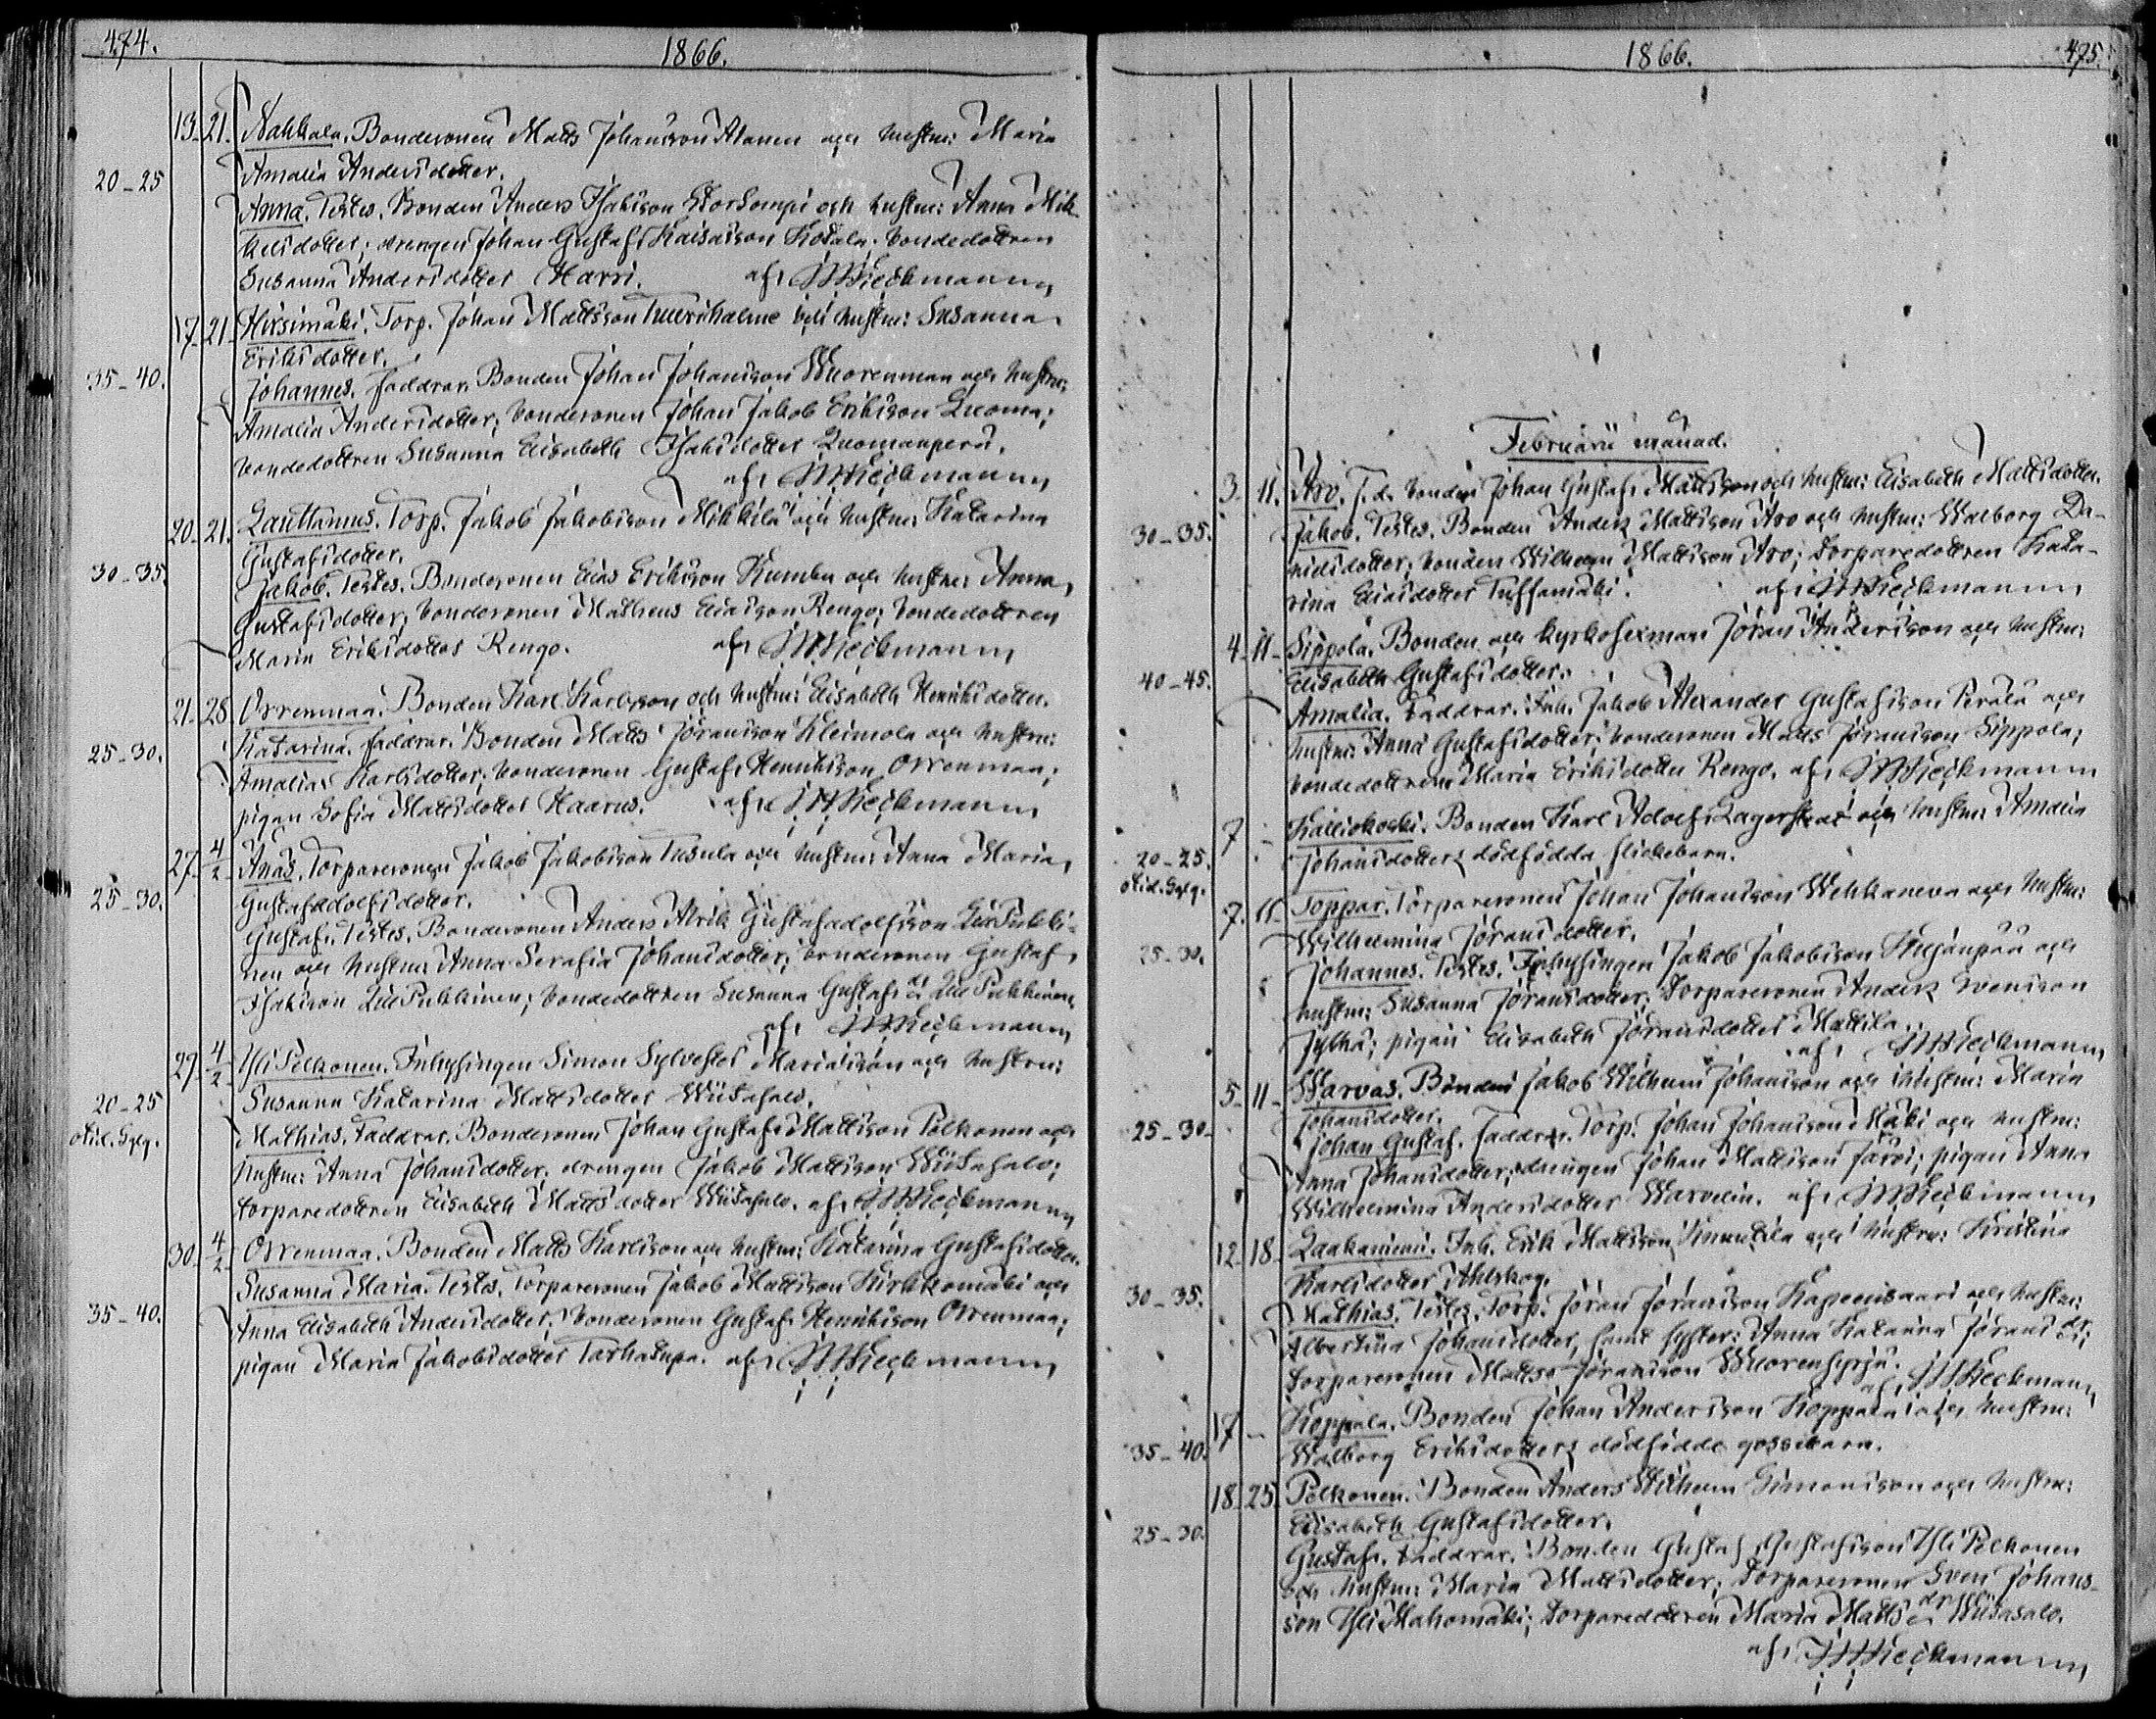 474.
1866.
13. 21. Nahkala. Bondesonen Matts Johansson Atanen och hustru: Maria
20-25 Amalia Andersdotter.
Anna. Testes. Bonden Anders Isaksson och hustru: Anna Mik-
kelsdotter; drengen Johan Gustaf Kaisasson Kotala. bondedottren
Susanna Andersdotter Harri. af: Wieckmann
17. 21. Hirsimäki. Torp. Johan Mattsson och hustru: Susanna
Eriksdotter.
35-40. Johannes. Faddrar. Bonden Johan Johansson Wuorenmaa och hustru:
Amalia Andersdotter; bondesonen Johan Jakob Eriksson Luoma;
bondedottren Susanna Elisabeth Isaksdotter Luomanperä.
af: Wieckmann
20. 21. Lauttamus. Torp. Jakob Jakobsson Mikkilä och hustru: Katarina
Gustafsdotter.
30-35 Jakob. Testes. Bondesonen Elias Eriksson och hustru: Anna
Gustafsdotter; bondesonen Matheus Eliasson Rengo; bondedottren
Maria Eriksdotter Rengo. af: Wieckmann
21. 28. Orrenmaa. Bonden Karl Karlsson och hustru: Elisabeth Henriksdotter.
25-30. Katarina. Faddrar. Bonden Matts Jöransson Kleimola och hustru:
Amalia Karlsdotter; bondesonen Gustaf Henriksson Orrenmaa;
pigan Sofia Mattsdotter Haarus. af: Wieckmann
27. 4/2 Anäs. Torparesonen Jakob Jakobsson och hustru: Anna Maria
25-30. Gustafadolfsdotter.
Gustaf. Testes. Bondesonen Anders Alrik Gustafadolfsson Lill Pukki-
nen och hustru: Anna Serafia Johansdotter; bondesonen Gustaf
Isaksson Lill Pukkinen; bondedottren Susanna Gustafs dr Lill Pukkinen
af: Wieckmann
29. 4/2 Yli Pelkonen. Inhysingen Simon Sylvester Mariasson och hustru:
20-25 Susanna Katarina Mattsdotter Wiitasalo.
Mathias. Faddrar. Bondesonen Johan Gustaf Mattsson Pelkonen och
hustru: Anna Johansdotter; drengen Jakob Mattsson Wiitasalo;
torparedottren Elisabeth Mattsdotter Wiitasalo. af: Wieckmann
30. 4/2 Orrenmaa. Bonden Matts Karlsson och hustru: Katarina Gustafsdotter.
Susanna Maria. Testes. Torparesonen Jakob Mattsson Kirkkomäki och
35-40. Anna Elisabeth Andersdotter; bondesonen Gustaf Henriksson Orrenmaa;
pigan Maria Jakobsdotter Tarhatupa. af: Wieckmann
1866.
475.
Februarii månad.
3. 11. Aro. bonden Johan Gustaf Mattsson och hustru: Elisabeth Mattsdotter.
30-35. Jakob. Testes. Bonden Anders Mattsson Aro och hustru: Walborg Da-
nielsdotter; bonden Wilhelm Mattsson Aro; torparedottren Kata-
rina Eliasdotter. af: Wieckmann
4. 11. Sippola. Bonden och kyrkosexman Jöran Andersson och hustru:
40-45. Elisabeth Gustafsdotter.
Amalia. Faddrar. Inh. Jakob Alexander Gustafsson Perälä och
hustru: Anna Gustafsdotter; bondesonen Matts Jöransson Sippola;
bondedottren Maria Eriksdotter Rengo. af: Wieckmann
7 - Kalliokoski. Bonden Karl Adolf Lagerstedt och hustru: Amalia
20-25. Johansdotters dödfödda flickebarn.
7. 11. Toppar. Torparesonen Johan Johansson Wehkaneva och hustru:
Wilhelmina Jöransdotter.
25-30. Johannes. Testes. Inhysingen Jakob Jakobsson Kujanpää och
hustru: Susanna Jöransdotter; Torparesonen Anders Svensson
Jylhä; pigan Elisabeth Jöransdotter Mattila.
af: Wieckmann
5. 11. Warvas. Bonden Jakob Wilhelm Johansson och hustru: Maria
Johansdotter.
25-30. Johan Gustaf. Faddrar. Torp. Johan Johansson Mäki och hustru:
Anna Johansdotter; drengen Johan Mattsson Järvi; pigan Anna
Wilhelmina Andersdotter Warvelin. af: Wieckmann
12. 18. Laakaniemi. Inh. Erik Mattsson och hustru: Kristina
Karlsdotter Ahlskog.
30-35. Mathias. Testes. Torp. Jöran Jöransson Kapeensaari och hustru:
Albertina Johansdotter, samt syster: Anna Katarina Jörans dr;
torparesonen Matts Jöransson Wuorensyrjä.
af: Wieckmann
17 - Koppala. Bonden Johan Andersson Koppala och hustru:
35-40. Walborg Eriksdotters dödfödde gossebarn.
18. 25. Pelkonen. Bonden Anders Wilhelm Simonsson och hustru:
25-30. Elisabeth Gustafsdotter.
Gustaf. Faddrar. Bonden Gustaf Gustafsson Yli Pelkonen
och hustru: Maria Mattsdotter; Torparesonen Sven Johans-
son Yli Mahomäki; torparedottren Maria Matts dr Wiitasalo.
af: Wieckmann